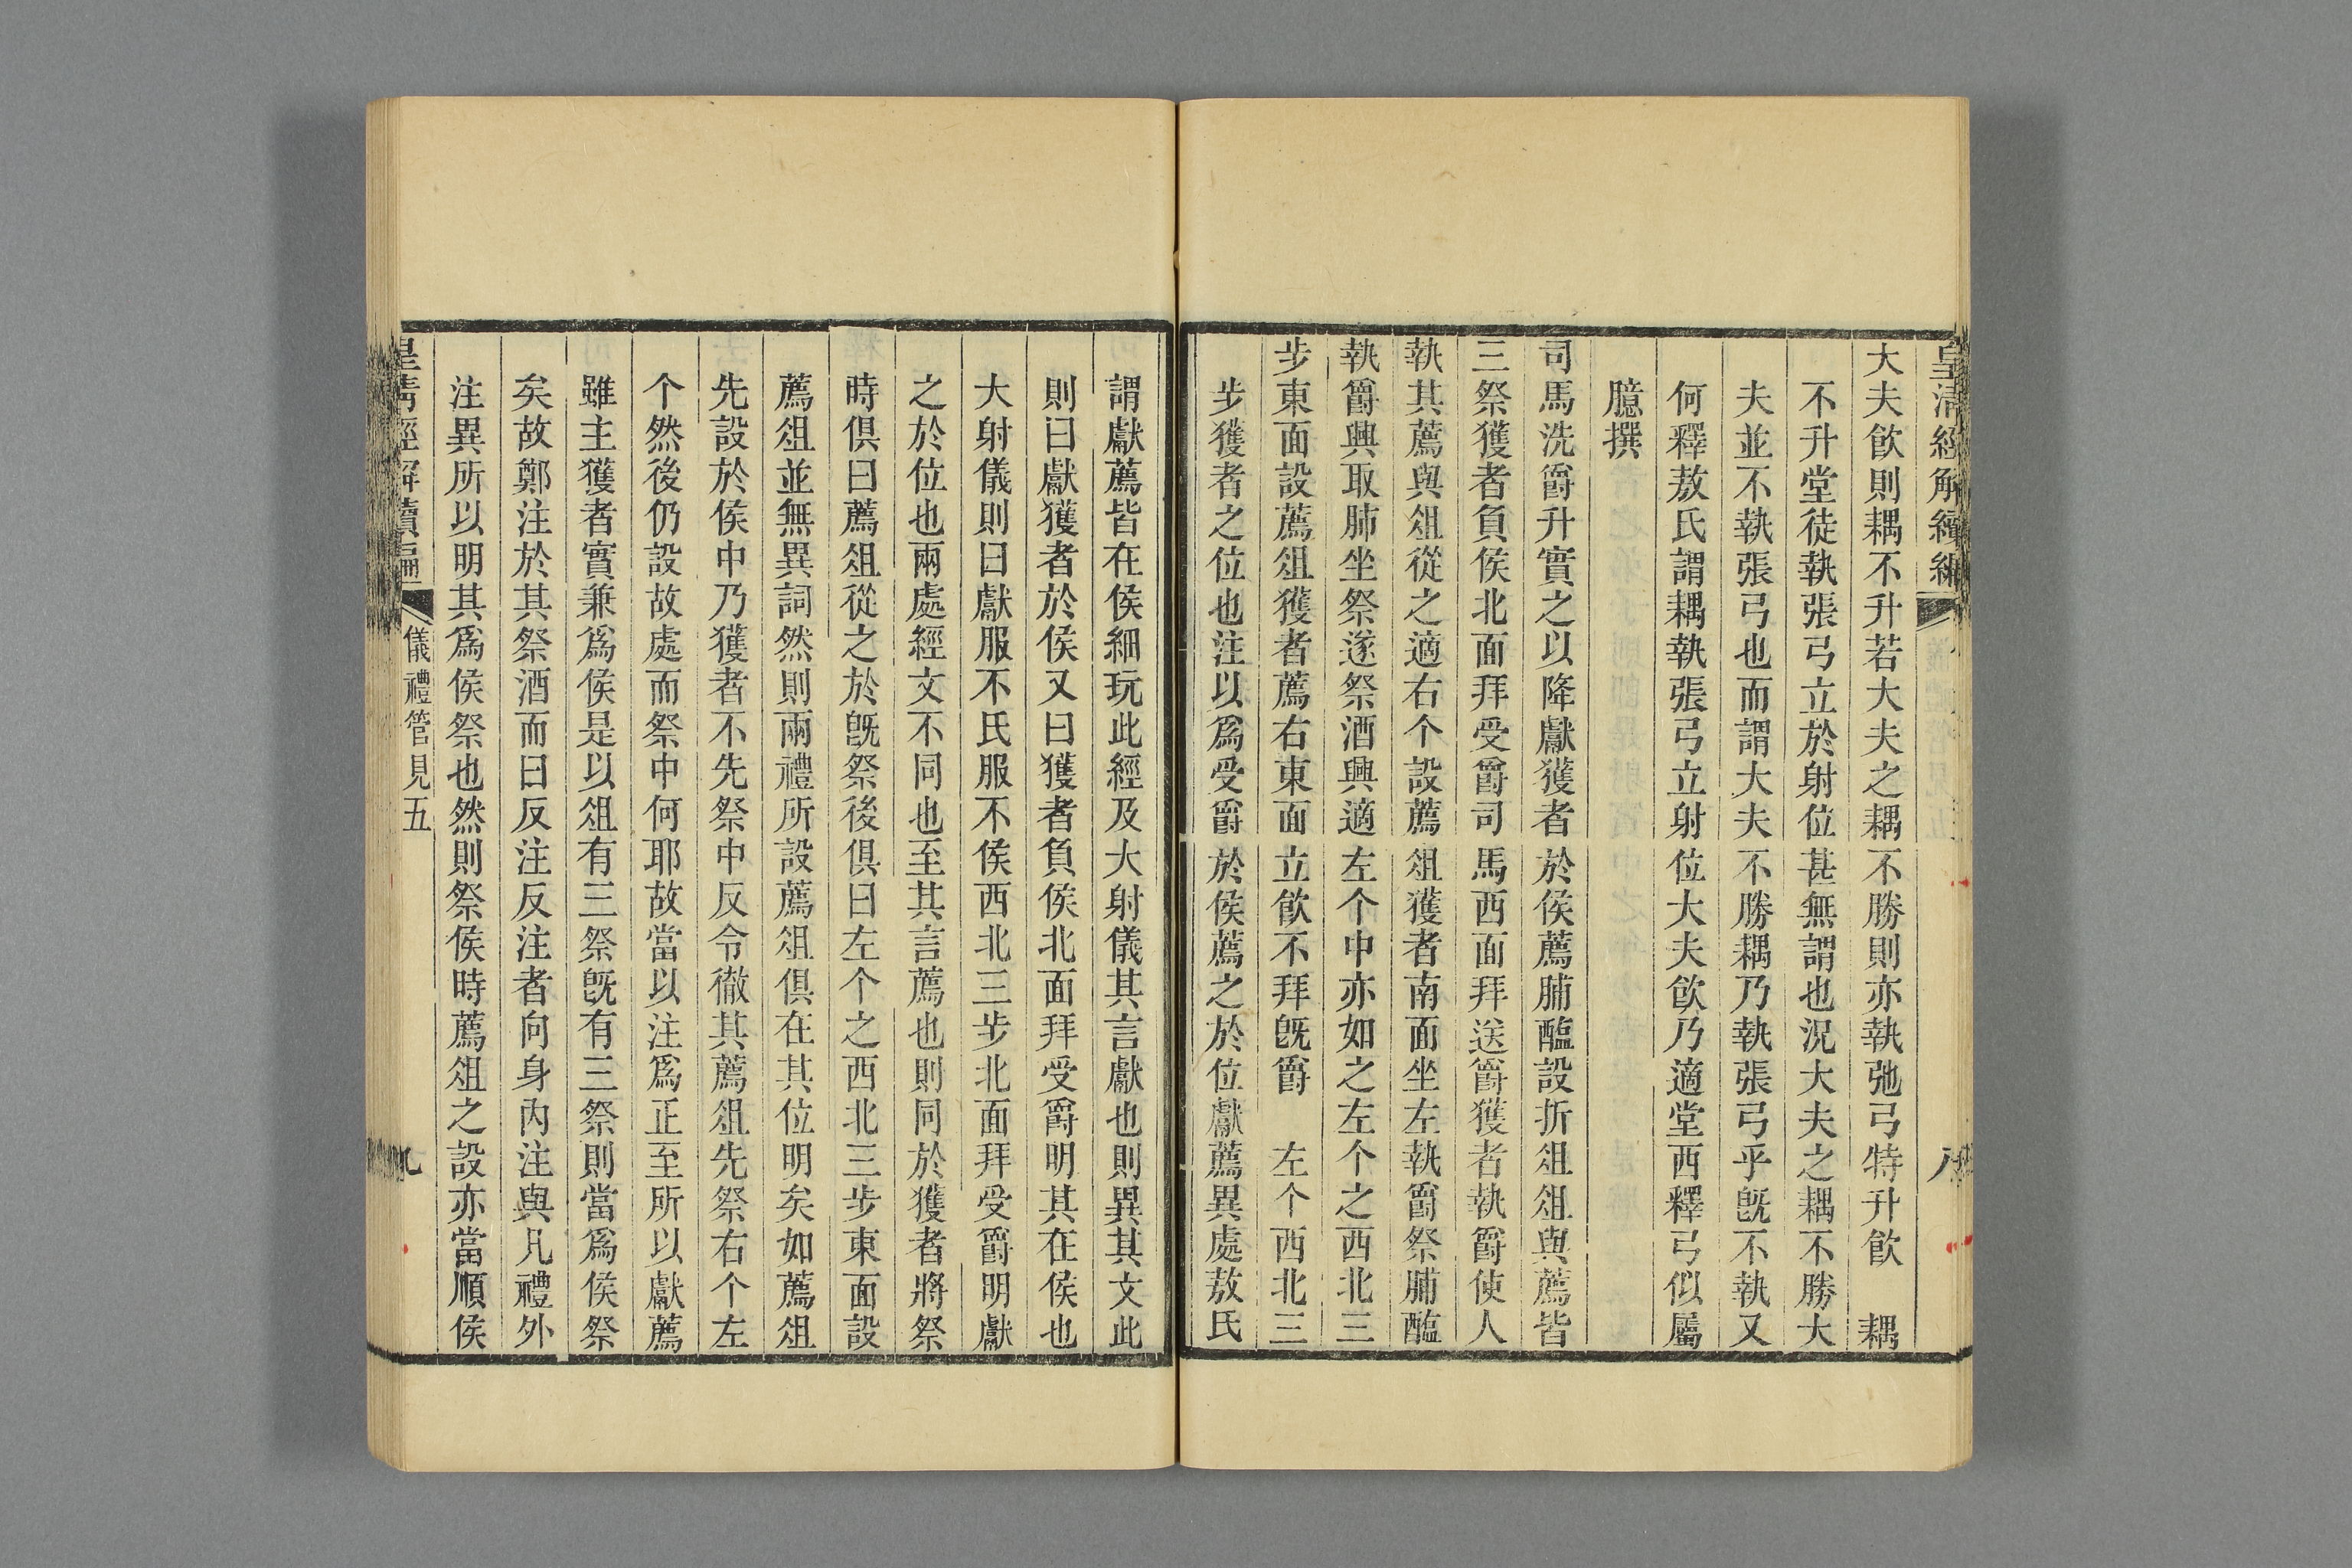 皇清經解續編
八
大夫飮則耦不升若大夫之耦不勝則亦執弛弓特升飮　耦
不升堂徒執張弓立於射位甚無謂也況大夫之耦不勝大
夫並不執張弓也而謂大夫不勝耦乃執張弓乎旣不執又
何釋敖氏謂耦執張弓立射位大夫飮乃適堂西釋弓似屬
臆撰
司馬洗爵升實之以降獻獲者於侯薦脯醢設折俎俎與薦皆
三祭獲者負侯北面拜受爵司馬西面拜送爵獲者執爵使人
執其薦與俎從之適右个設薦俎獲者南面坐左執爵祭脯醢
執爵興取肺坐祭遂祭酒興適左个中亦如之左个之西北三
步東面設薦俎獲者薦右東面立飮不拜旣爵　左个西北三
步獲者之位也注以爲受爵於侯薦之於位獻薦異處敖氏
謂獻薦皆在侯細玩此經及大射儀其言獻也則異其文此
則曰獻獲者於侯又曰獲者負侯北面拜受爵明其在侯也
大射儀則曰獻服不氏服不侯西北三步北面拜受爵明獻
之於位也兩處經文不同也至其言薦也則同於獲者將祭
時俱曰薦俎從之於旣祭後俱曰左个之西北三步東面設
薦俎並無異詞然則兩禮所設薦俎俱在其位明矣如薦俎
先設於侯中乃獲者不先祭中反令徹其薦俎先祭右个左
个然後仍設故處而祭中何耶故當以注爲正至所以獻薦
雖主獲者實兼爲侯是以俎有三祭旣有三祭則當爲侯祭
矣故鄭注於其祭酒而曰反注反注者向身內注與凡禮外
注異所以明其爲侯祭也然則祭侯時薦俎之設亦當順侯
皇淸經解續編
儀禮管見五
九